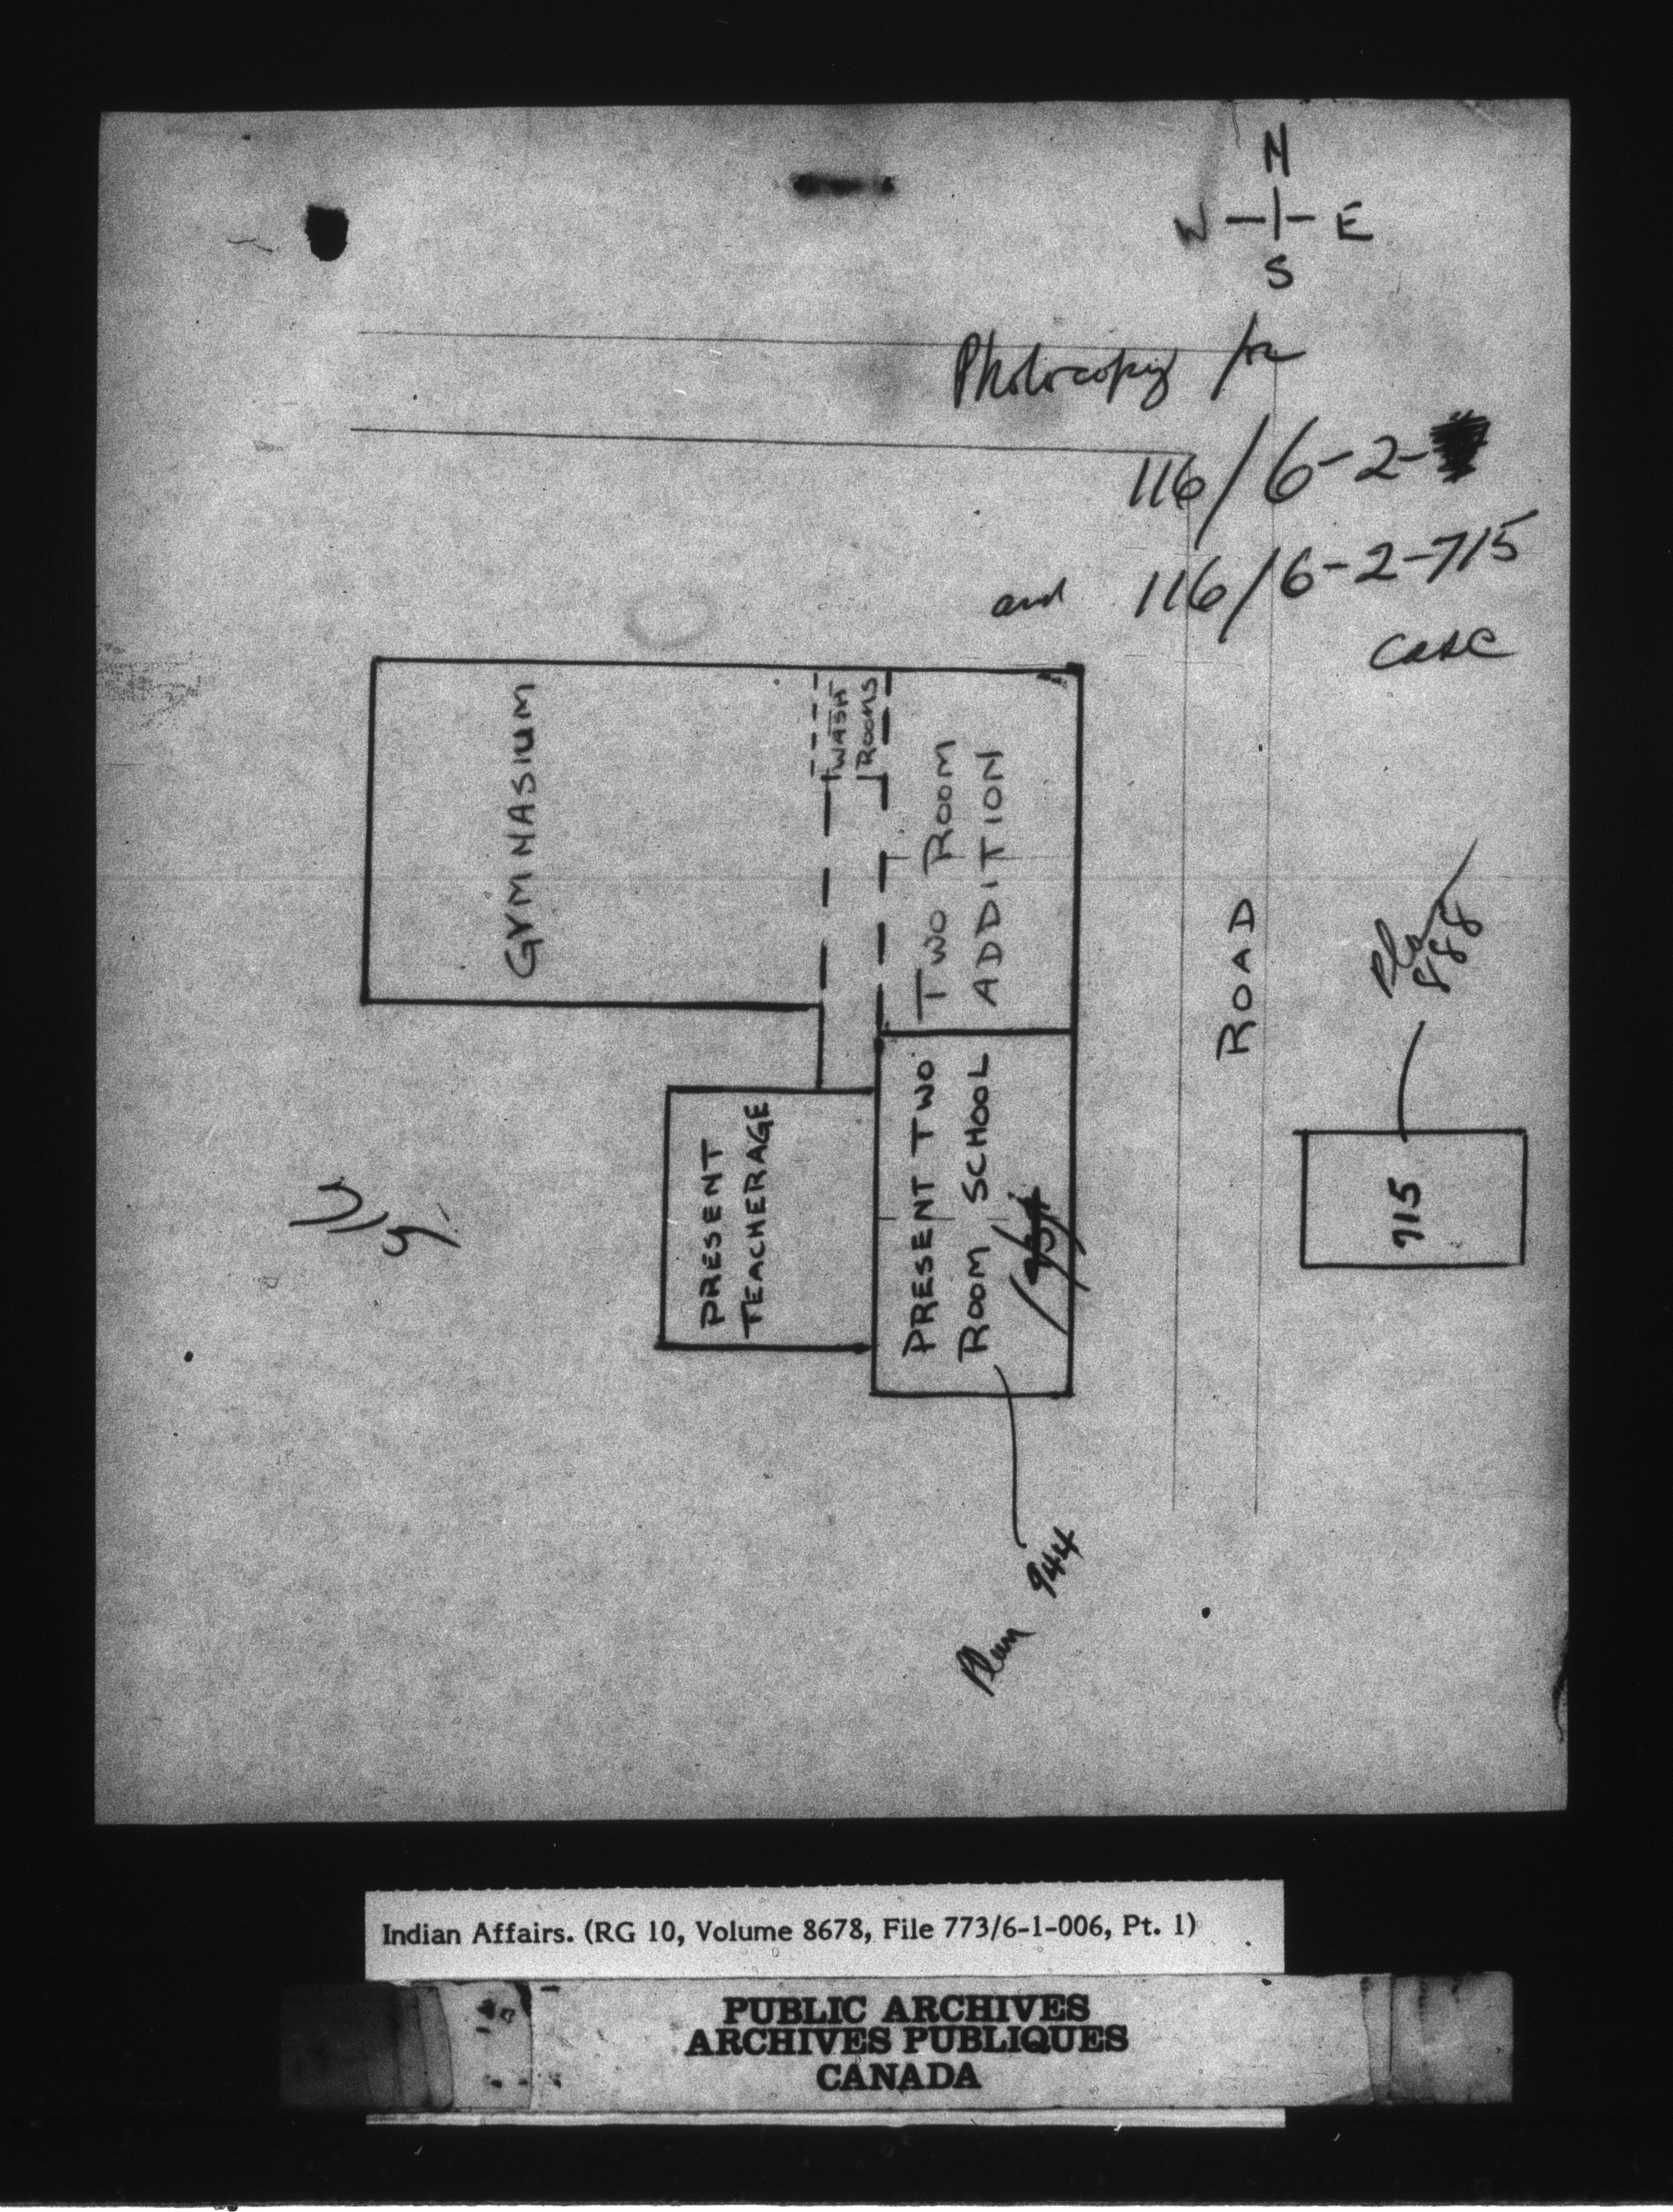 N
W E
S
Photocopy for
116/6-2-
and 116/6-2-715
case
GYMNASIUM
WASH
ROOMS
TWO ROOM
ADDITION
ROAD
PRESENT
TEACHERAGE
PRESENT TWO
ROOM SCHOOL
715
888
715
Plan 944
Indian Affairs. (RG 10, Volume 8678, File 773/6-1-006, Pt. 1)
PUBLIC ARCHIVES
ARCHIVES PUBLIQUES
CANADA